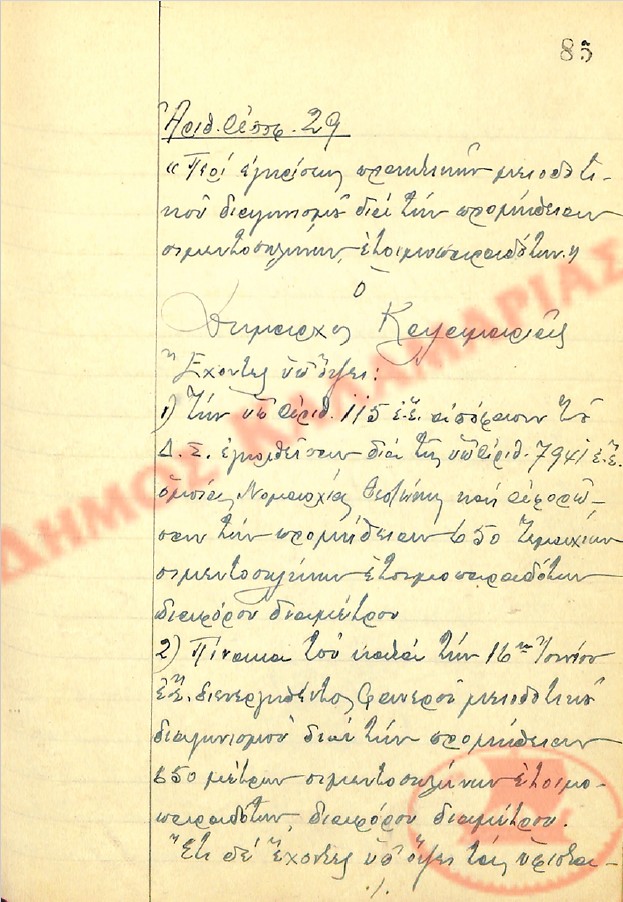 85
Ἀριθ. ἀποφ. 29
«Περί ἐγκρίσεως πρακτικῶν μειοδοτι-
κοῦ διαγωνισμοῦ διά τήν προμήθειαν
σιμεντοσωλήνων ἑτοιμοπαραδότων.»
Ὁ
Δήμαρχος Καλαμαριᾶς
Ἔχοντες ὑπ' ὄψει:
1) Τήν ὑπ' ἀριθ. 115 ἐ.ἔ. ἀπόφασιν τοῦ
Δ.Σ. ἐγκριθεῖσαν διά τῆς ὑπ' ἀριθ. 7941 ἐ.ἔ.
ὁμοίας Νομαρχίας Θεσ/νίκης καί ἀφορῶ-
σαν τήν προμήθειαν 650 τεμαχίων
σιμεντοσωλήνων ἑτοιμοπαραδότων
διαφόρου διαμέτρου
2) Πίνακα τοῦ κατά τήν 16ην Ἰουνίου
ἐ.ἔ. διενεργηθέντος φανεροῦ μειοδοτικοῦ
διαγωνισμοῦ διά τήν προμήθειαν
650 μέτρων σιμεντοσωλήνων ἑτοιμο-
παραδότων διαφόρου διαμέτρου.
Ἔτι δέ ἔχοντες ὑπ' ὄψει τάς ὑφιστα-
./.
ΔΗΜΟΣ ΚΑΛΑΜΑΡΙΑΣ